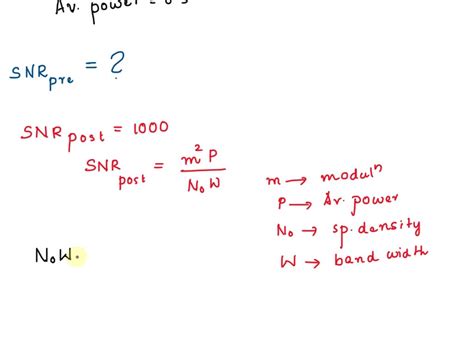 Av. power = 0.5
SNR pre = ?
SNR post = 1000
SNR post = m² P / N₀ W
m → modulⁿ
P → Av. power
N₀ → sp. density
W → band width
N₀W